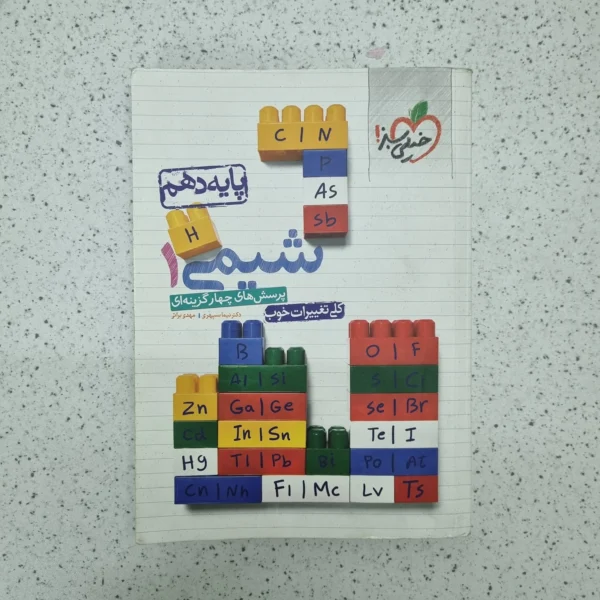 خیلی سبز!
C | N
P
As
Sb
پایه دهم
H
شیمی ۱
پرسش‌های چهارگزینه‌ای
کلی تغییرات خوب
B
O | F
Al | Si
S | Cl
Zn
Ga | Ge
Se | Br
Cd
In | Sn
Te | I
Hg
Tl | Pb
Bi
Po | At
Cn | Nh
Fl | Mc
Lv
Ts